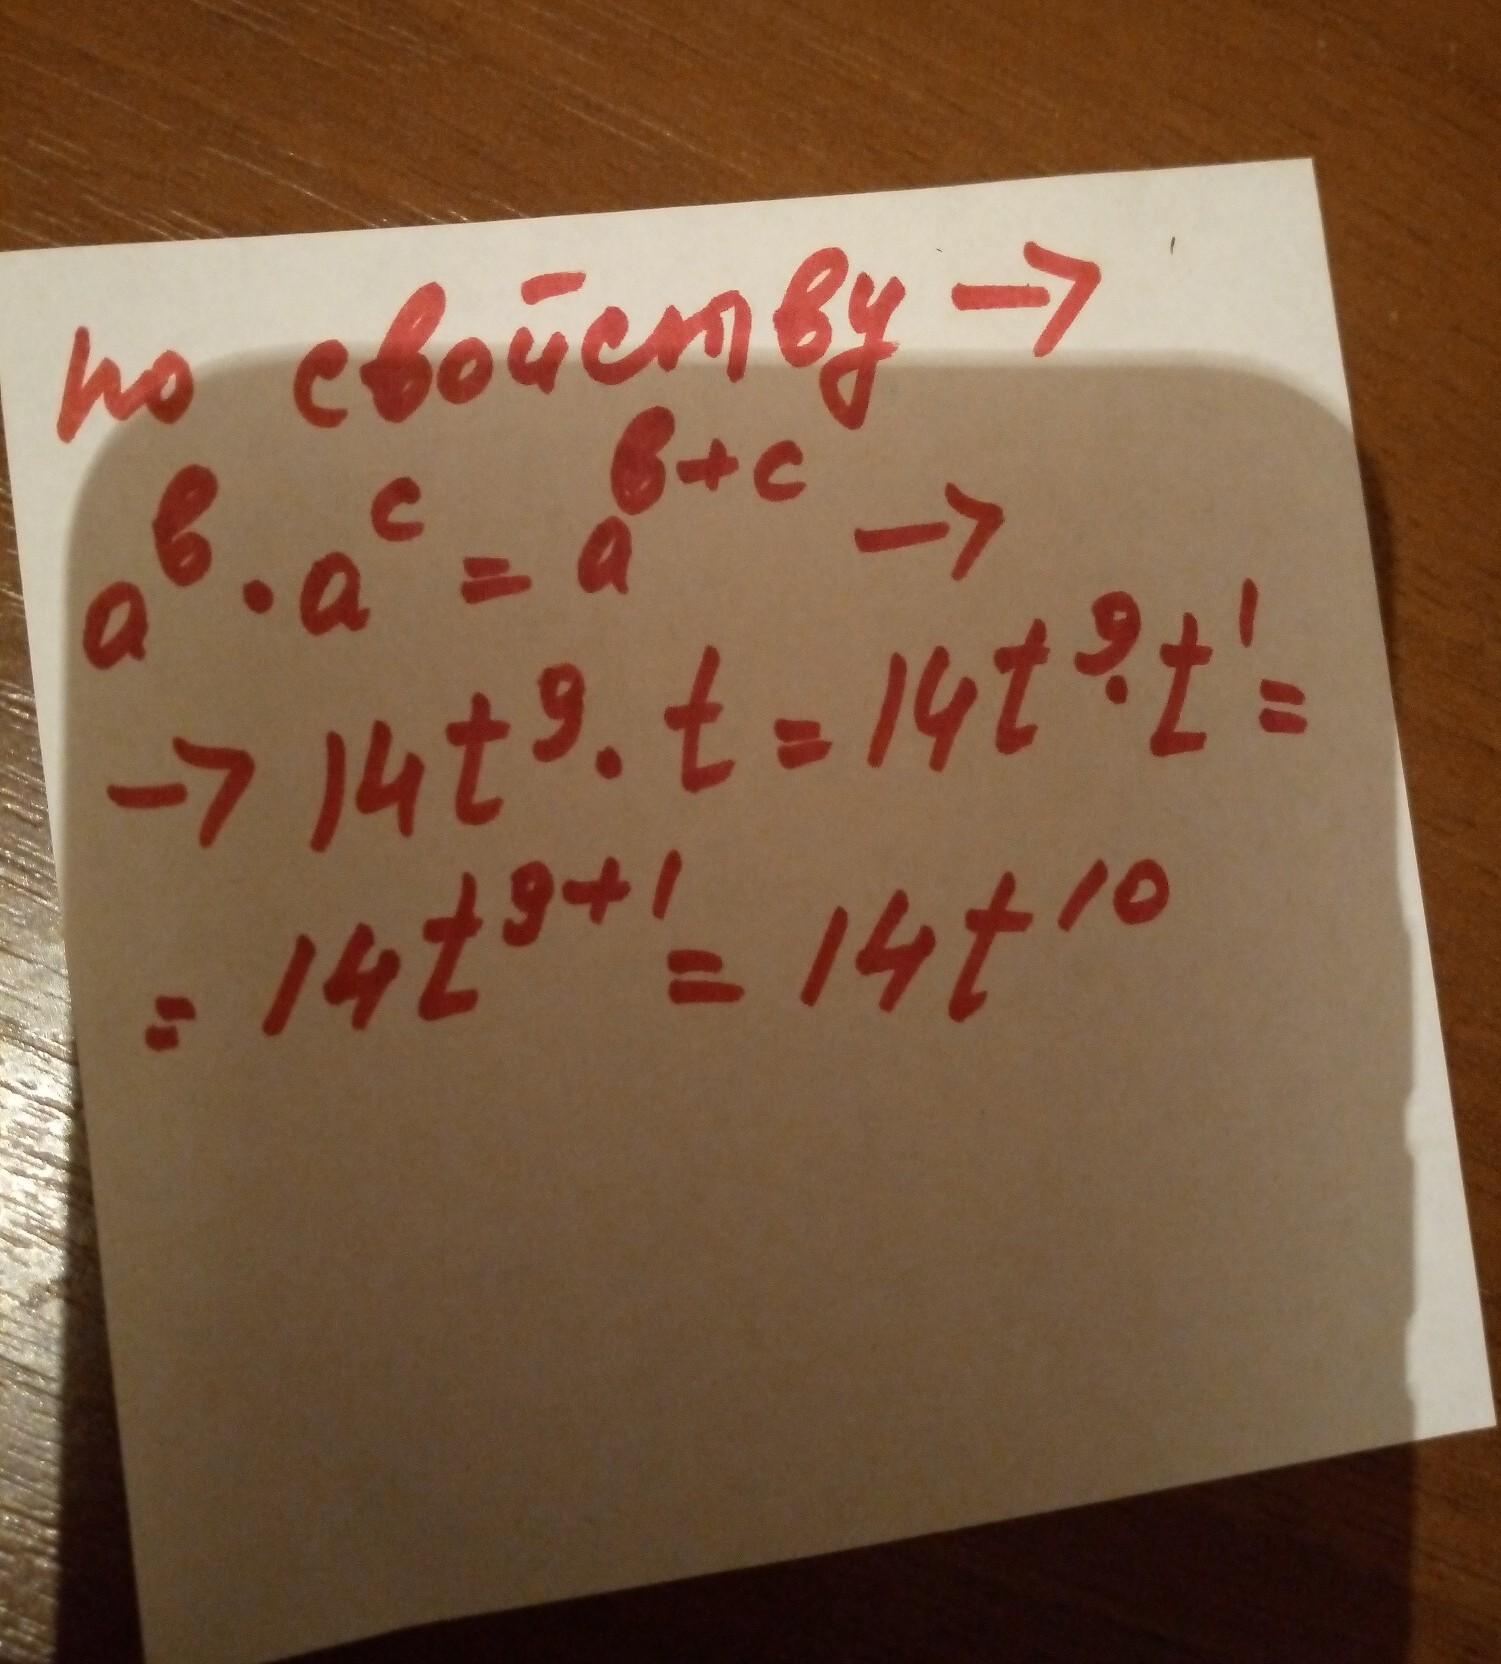 по свойству →
a^в · a^c = a^в+c →
→ 14t^9 · t = 14t^9 · t^1 =
= 14t^9+1 = 14t^10